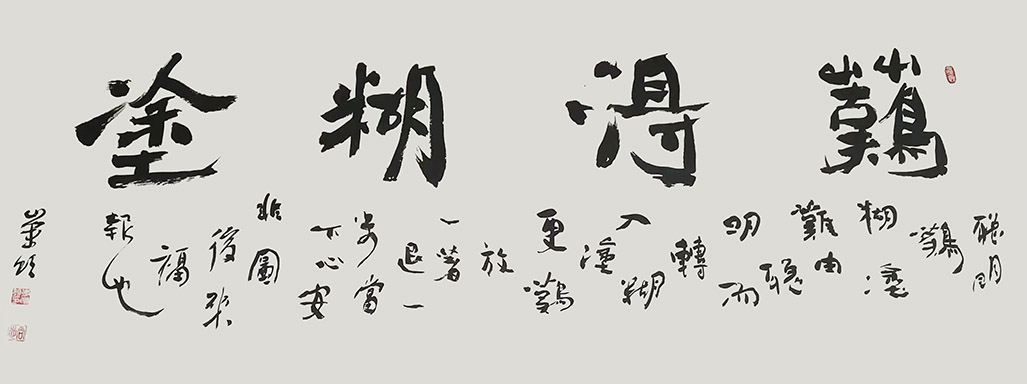 難得糊塗
聰明
難
糊塗
難由
聰
明而
轉
入糊
塗
更難
放
一著
退一
步當
下心安
非圖
後來
福
報也